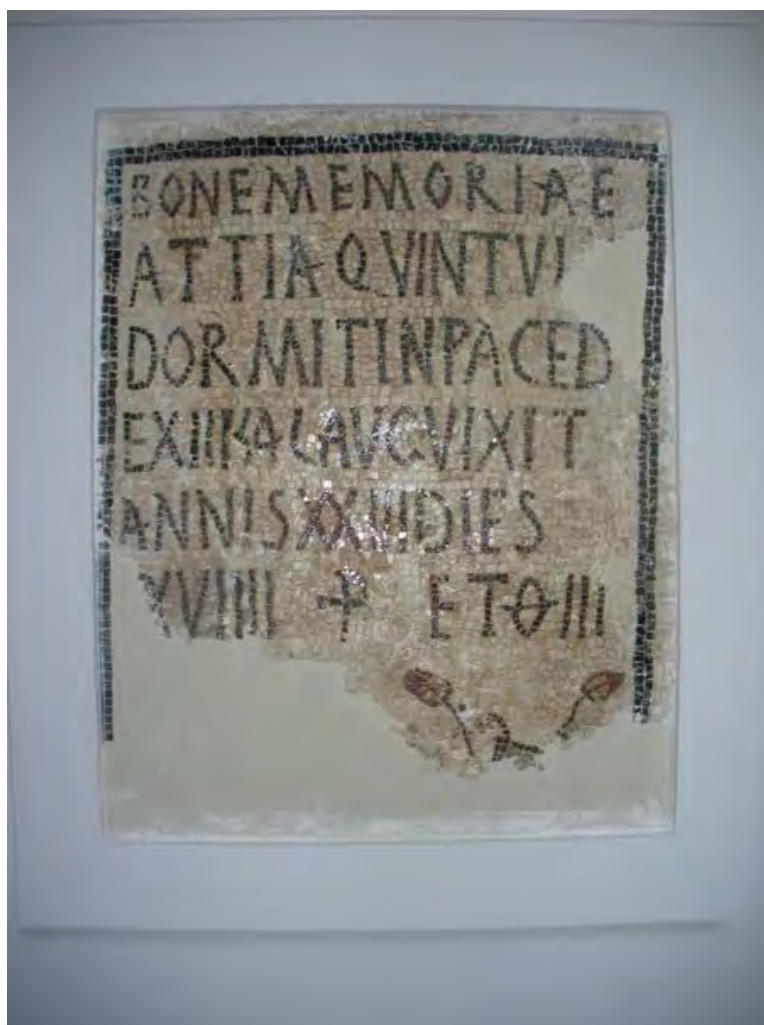 BONEMEMORIAE
ATTIAQVINTVI
DORMITINPACED
EXIIKALAVGVIXIT
ANNISXXIIIDIES
XVIIII + ETOIII